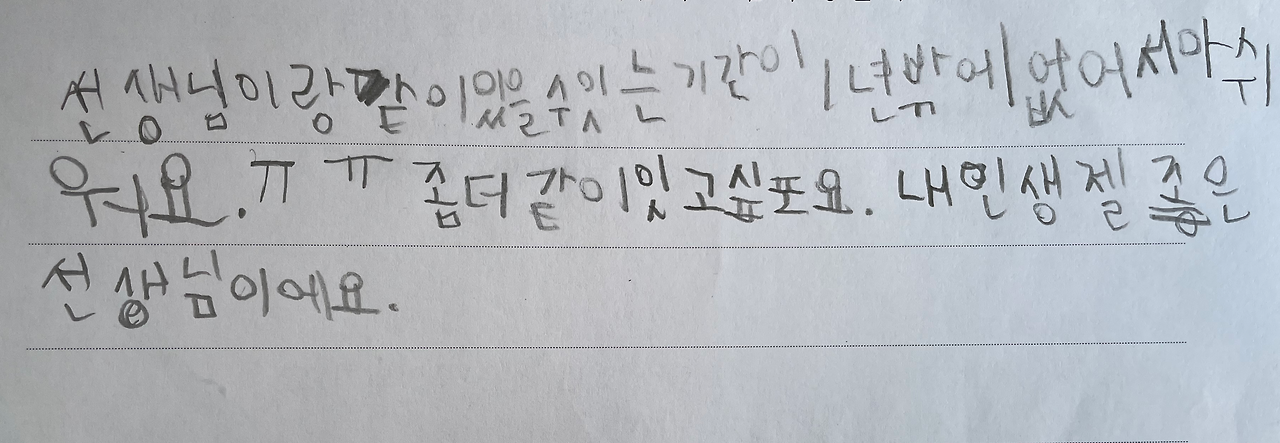 선생님이랑 같이있을수있는기간이 1년밖에없어서아쉬
워요. ㅠ ㅠ 좀더 같이있고싶포요. 내인생젤 좋은
선생님이에요.